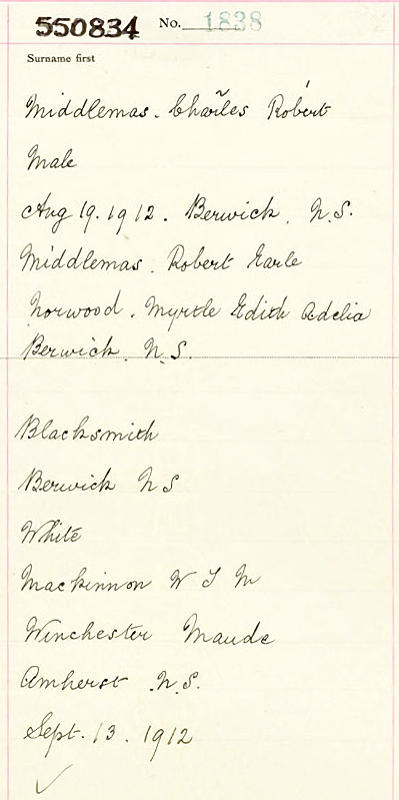 550834 No. 1838
Surname first
Middlemas. Charles Robert
Male
Aug 19. 1912. Berwick. N.S.
Middlemas. Robert Earle
Norwood. Myrtle Edith Adelia
Berwick. N.S.
Blacksmith
Berwick N S
White
Mackinnon W T M
Winchester Maude
Amherst N.S.
Sept. 13. 1912